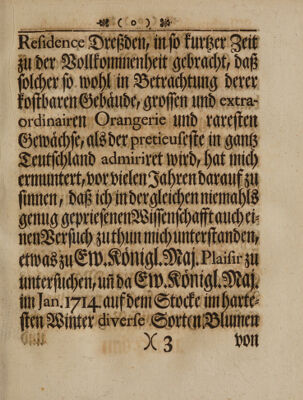 ( o )
Residence Dreßden, in so kurtzer Zeit
zu der Vollkommenheit gebracht, daß
solcher so wohl in Betrachtung derer
kostbaren Gebäude, grossen und extra-
ordinairen Orangerie und raresten
Gewächse, als der pretieuseste in gantz
Teutschland admiriret wird, hat mich
ermuntert, vor vielen Jahren darauf zu
sinnen, daß ich in dergleichen niemahls
genug gepriesenen Wissenschafft auch ei-
nen Versuch zu thun mich unterstanden,
etwas zu Ew. Königl. Maj. Plaisir zu
untersuchen, uñ da Ew. Königl. Maj.
im Jan. 1714 auf dem Stocke im harte-
sten Winter diverse Sorten Blumen
)( 3 von